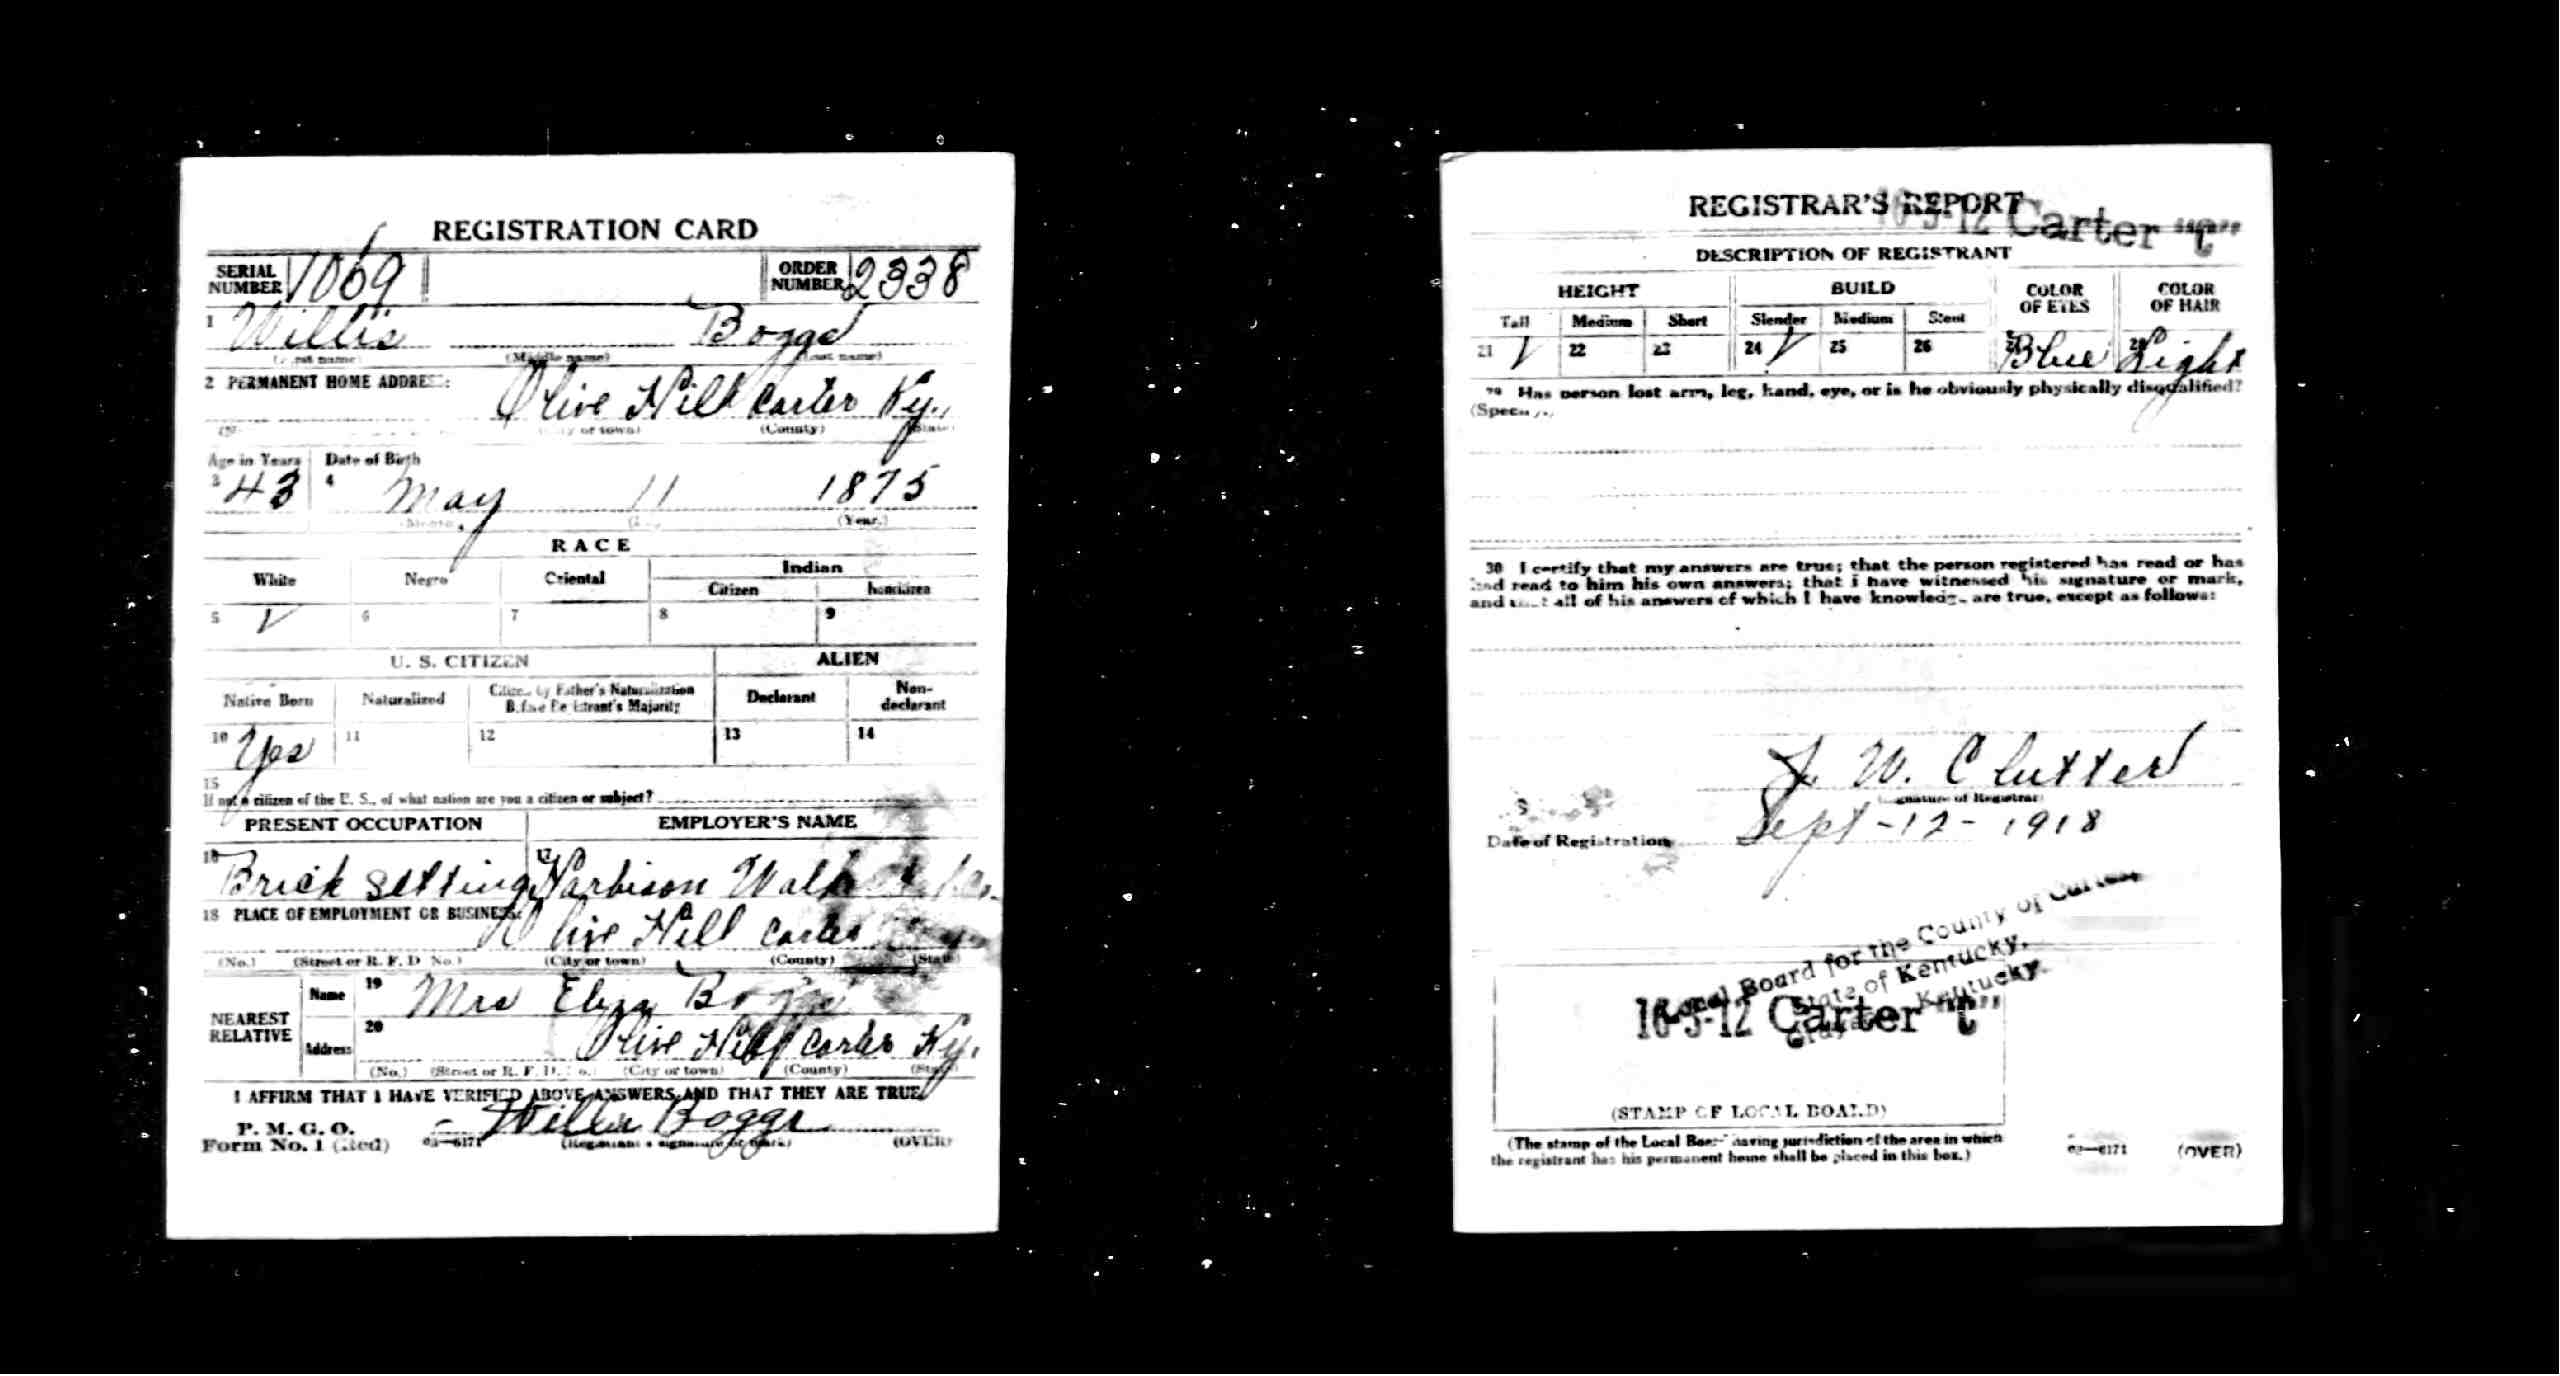 REGISTRATION CARD
SERIAL NUMBER 1069 ORDER NUMBER 2338
1 Willis Boggs
(Middle name) (Last name)
2 PERMANENT HOME ADDRESS:
Olive Hill Carter Ky.
(City or town) (County) (State)
Age in Years Date of Birth
3 43 4 May 11 1875
(Year.)
RACE
White Negro Oriental Indian
Citizen Noncitizen
5 ✓ 6 7 8 9
U. S. CITIZEN ALIEN
Native Born Naturalized Citizen by Father's Naturalization Before Registrant's Majority Declarant Non-declarant
10 Yes 11 12 13 14
15
If not a citizen of the U. S., of what nation are you a citizen or subject?
PRESENT OCCUPATION EMPLOYER'S NAME
16 Brick setting 17 Harbison Walk
18 PLACE OF EMPLOYMENT OR BUSINESS:
Olive Hill Carter
(No.) (Street or R. F. D. No.) (City or town) (County) (State)
NEAREST RELATIVE
Name 19 Mrs Eliza Boggs
Address 20 Olive Hill Carter Ky.
(No.) (Street or R. F. D. No.) (City or town) (County) (State)
I AFFIRM THAT I HAVE VERIFIED ABOVE ANSWERS AND THAT THEY ARE TRUE
P. M. G. O.
Form No. 1 (Red) 03—6171 Willis Boggs (OVER)
(Registrant's signature or mark)
REGISTRAR'S REPORT
16-5-12 Carter "C"
DESCRIPTION OF REGISTRANT
HEIGHT BUILD COLOR OF EYES COLOR OF HAIR
Tall Medium Short Slender Medium Stout
21 ✓ 22 23 24 ✓ 25 26 27 Blue 28 Light
29 Has person lost arm, leg, hand, eye, or is he obviously physically disqualified?
(Specify.)
30 I certify that my answers are true; that the person registered has read or has
had read to him his own answers; that I have witnessed his signature or mark,
and that all of his answers of which I have knowledge are true, except as follows:
W. Clutter
(Signature of Registrar)
Date of Registration Sept-12-1918
Local Board for the County of Carter,
State of Kentucky,
Kentucky.
16-5-12 Carter "C"
(STAMP OF LOCAL BOARD)
(The stamp of the Local Board having jurisdiction of the area in which
the registrant has his permanent home shall be placed in this box.)
03—6171 (OVER)